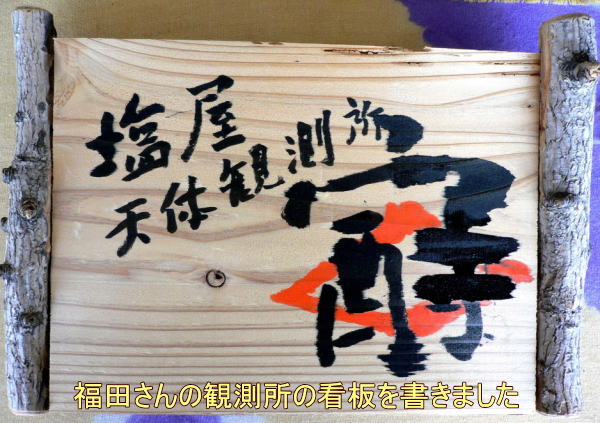 塩屋
天体観測所
福田さんの観測所の看板を書きました